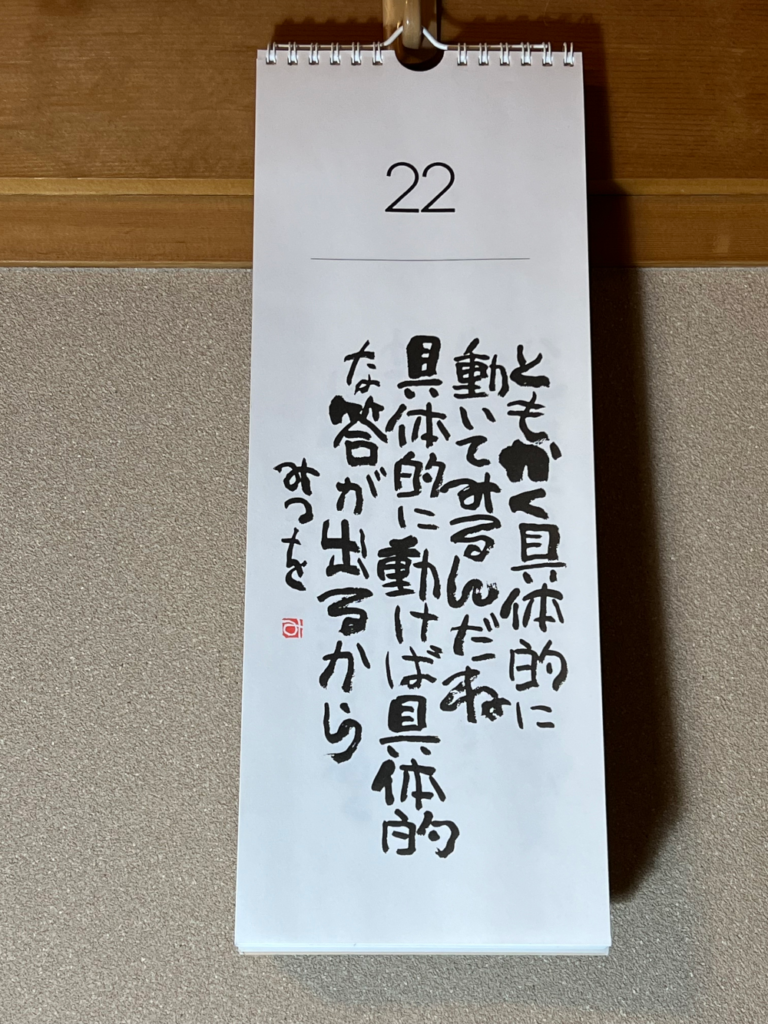 22
ともかく具体的に
動いてみるんだね
具体的に動けば具体的
な答が出るから
みつを
み